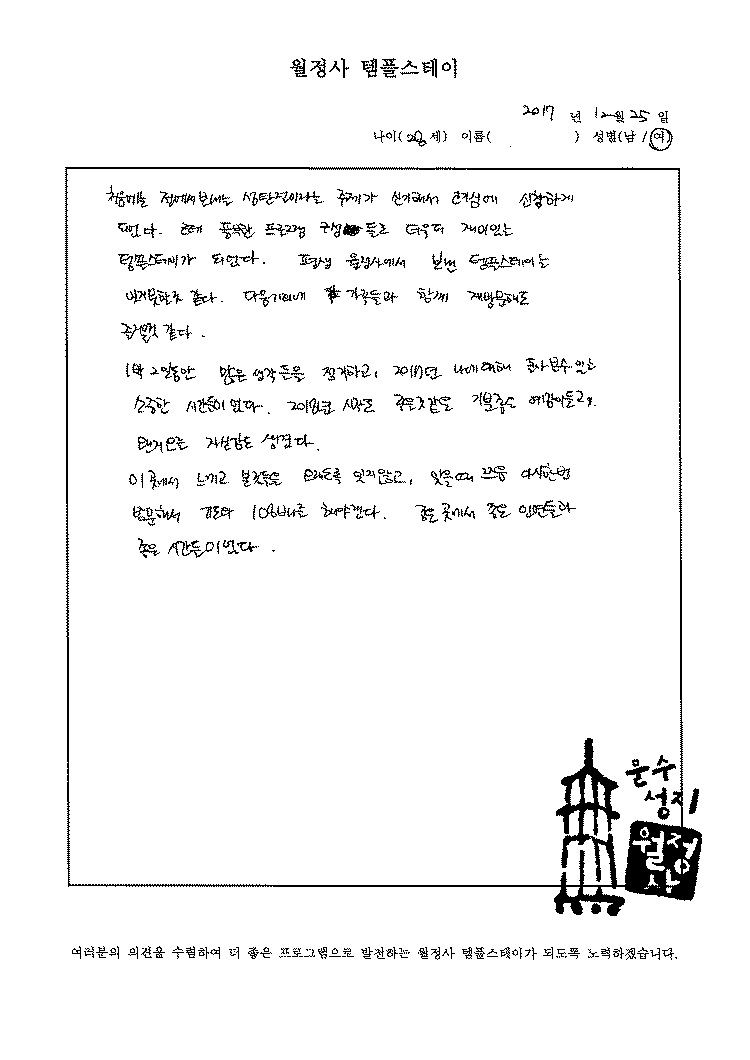 월정사 템플스테이
2017 년 12월 25 일
나이(28 세) 이름( ) 성별(남 / 여)
처음에는 절에서보내는 성탄절이라는 주제가 신기해서 호기심에 신청하게
되었다. 프로그램 구성 들로 더욱더 재미있는
템플스테이가 되었다. 평생 월정사에서 보낸 템플스테이는
잊지못할것 같다. 다음기회에 가족들과 함께 재방문해도
좋을것 같다.
1박 2일동안 많은 생각들을 정리하고, 2017년 나에대해 돌아볼수 있는
소중한 시간들이었다. 2018년 시작도 좋을것같은 기분좋은 예감이들고,
자신감도 생겼다.
이곳에서 느끼고 본것들을 오래도록 잊지않고, 잊을때 쯤 다시한번
방문해서 108배를 해야겠다. 좋은 곳에서 좋은 인연들과
좋은 시간들이었다.
문수
성지
월정
사
여러분의 의견을 수렴하여 더 좋은 프로그램으로 발전하는 월정사 템플스테이가 되도록 노력하겠습니다.